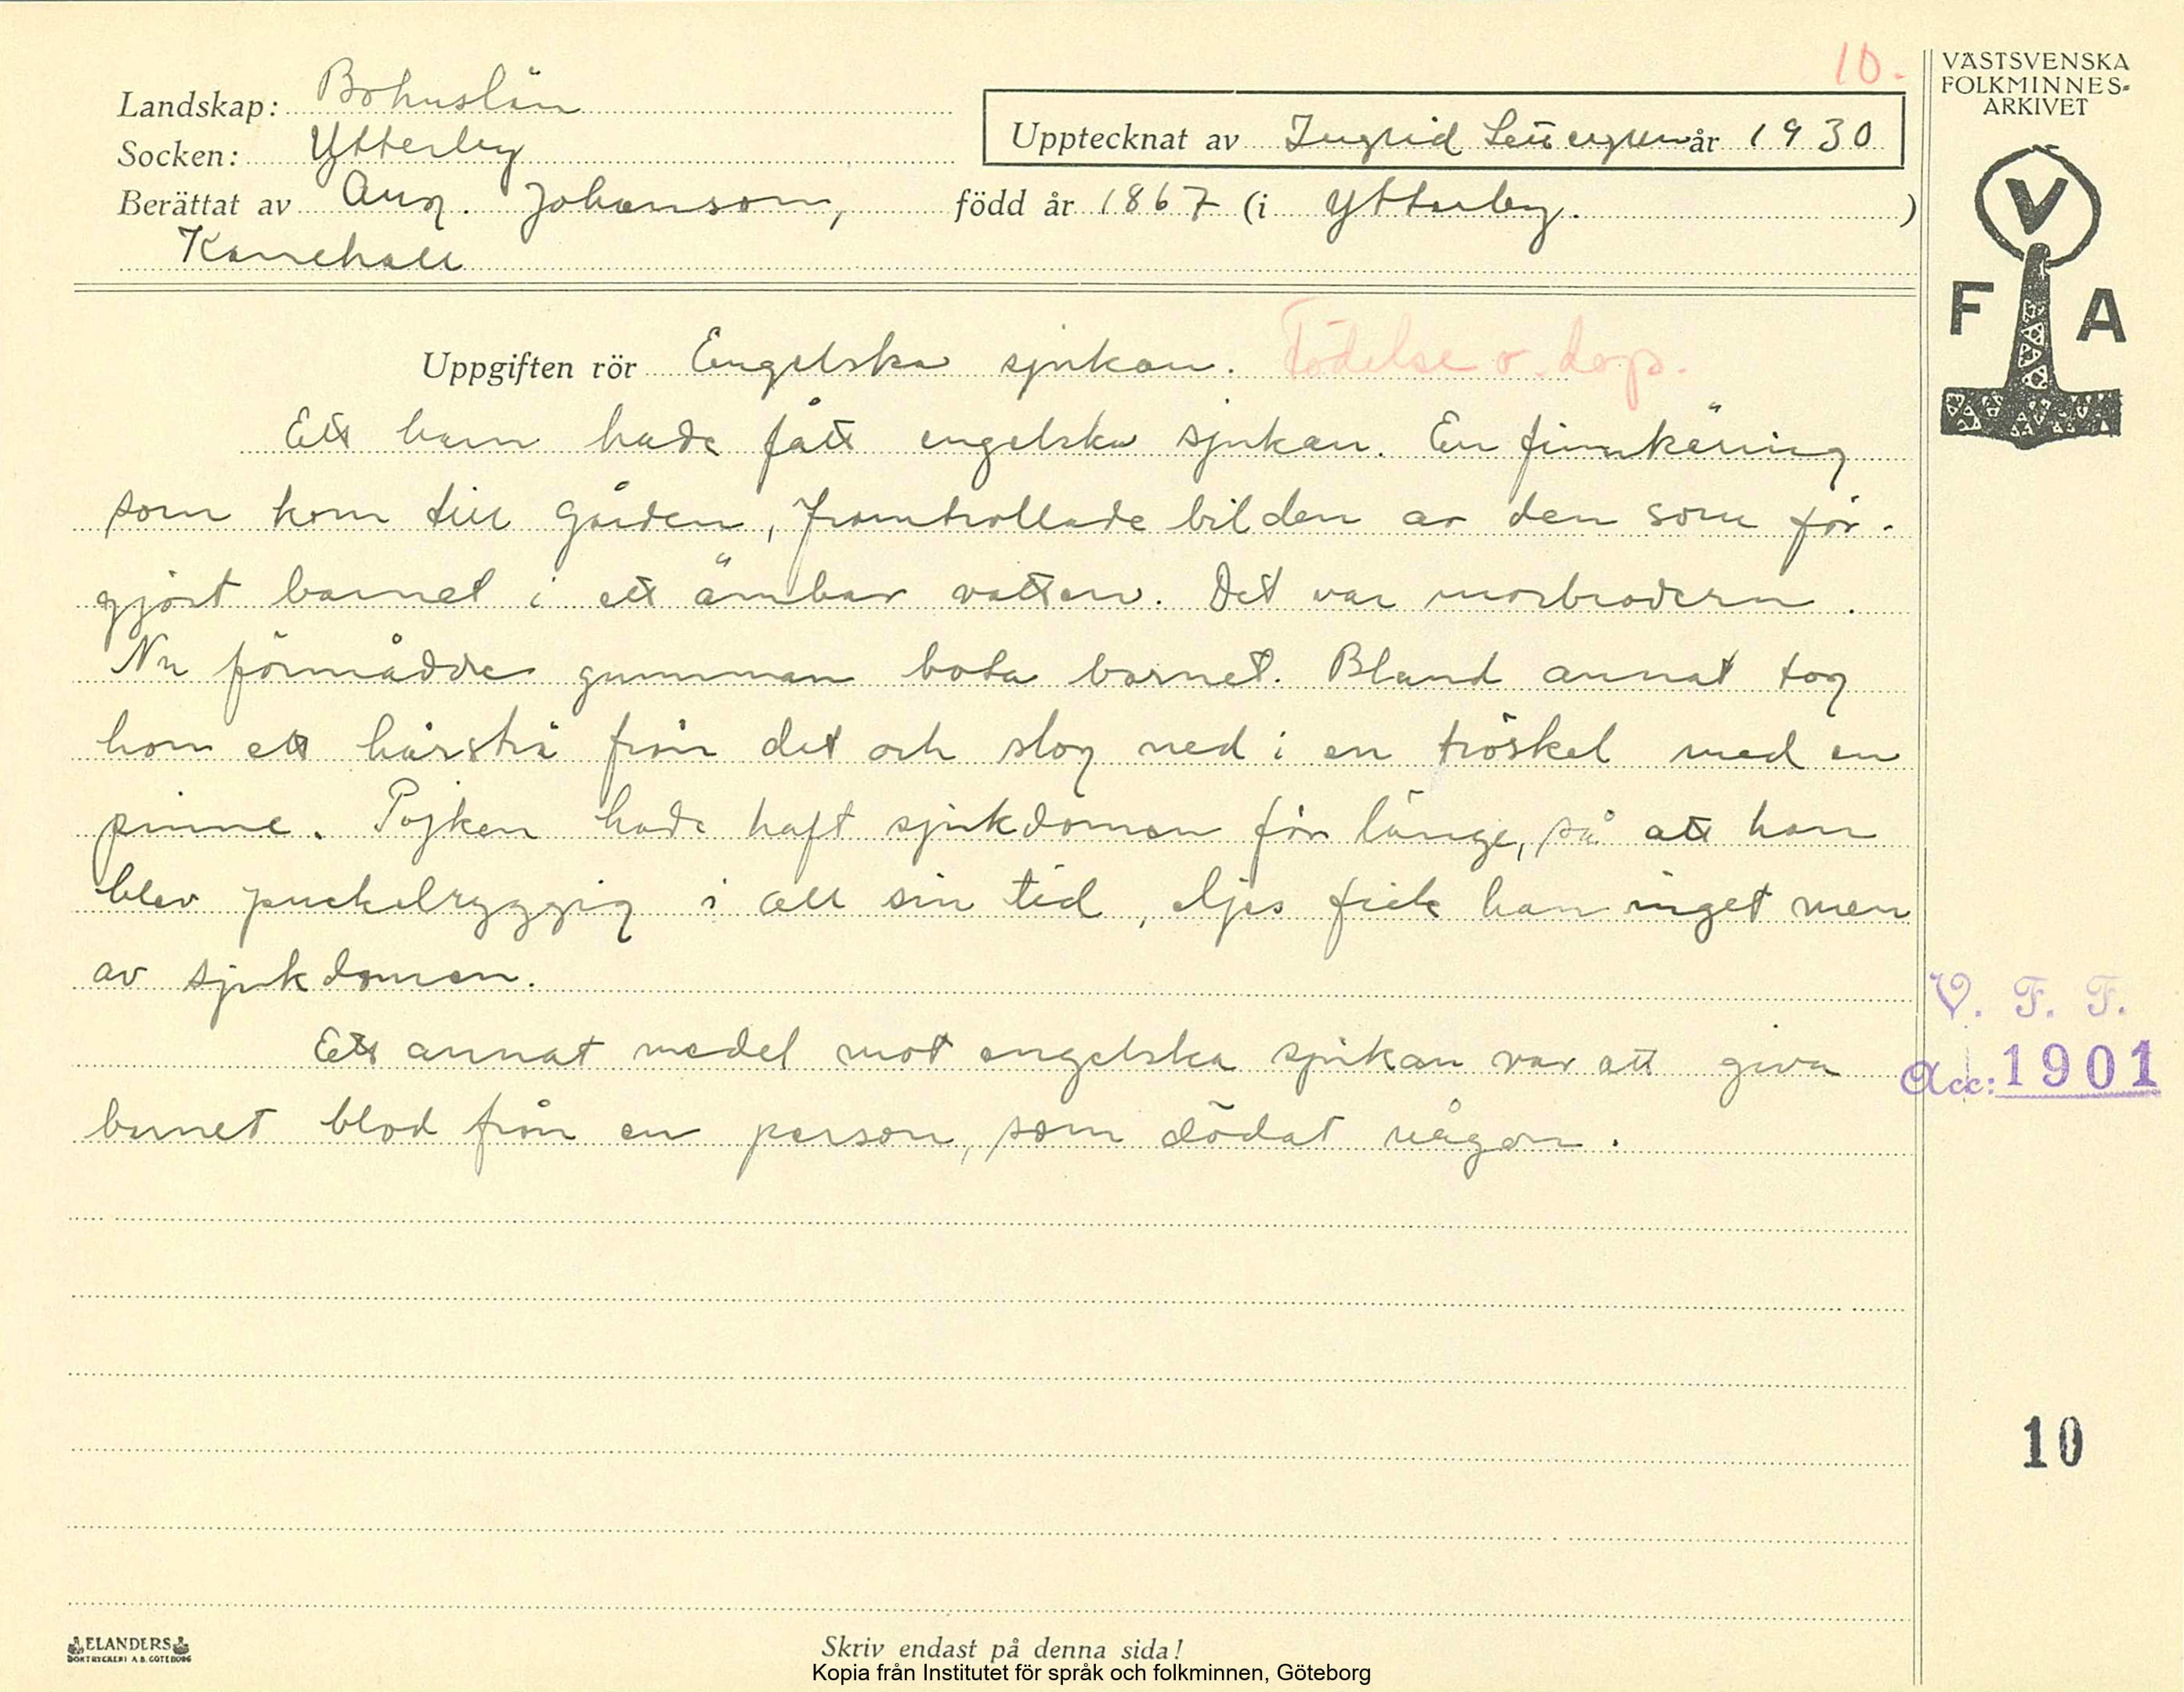 10.
VÄSTSVENSKA
FOLKMINNES-
ARKIVET
Landskap: Bohuslän
Socken: Ytterby
Upptecknat av Ingrid år 1930
Berättat av Aug. Johansson, född år 1867 (i Ytterby. )
Kanehall
V
F A
Uppgiften rör Engelska sjukan. Födelse o. dop.
Ett barn hade fått engelska sjukan. En finnkäring
som kom till gården, framtrollade bilden av den som för-
gjort barnet i ett ämbar vatten. Det var morbrodern.
Nu förmådde gumman bota barnet. Bland annat tog
hon ett hårstrå från det och slog ned i en tröskel med en
pinne. Pojken hade haft sjukdomen för länge, så att han
blev puckelryggig i all sin tid, eljes fick han inget men
av sjukdomen.
Ett annat medel mot engelska sjukan var att giva
barnet blod från en person, som dödat någon.
V. F. F.
Acc: 1901
10
ELANDERS
BOKTRYCKERI A.B. GÖTEBORG
Skriv endast på denna sida!
Kopia från Institutet för språk och folkminnen, Göteborg